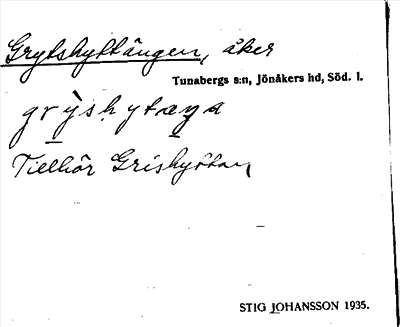 Grytshyttängen, åker
Tunabergs s:n, Jönåkers hd, Söd. l.
Tillhör Grishyttan
STIG JOHANSSON 1935.